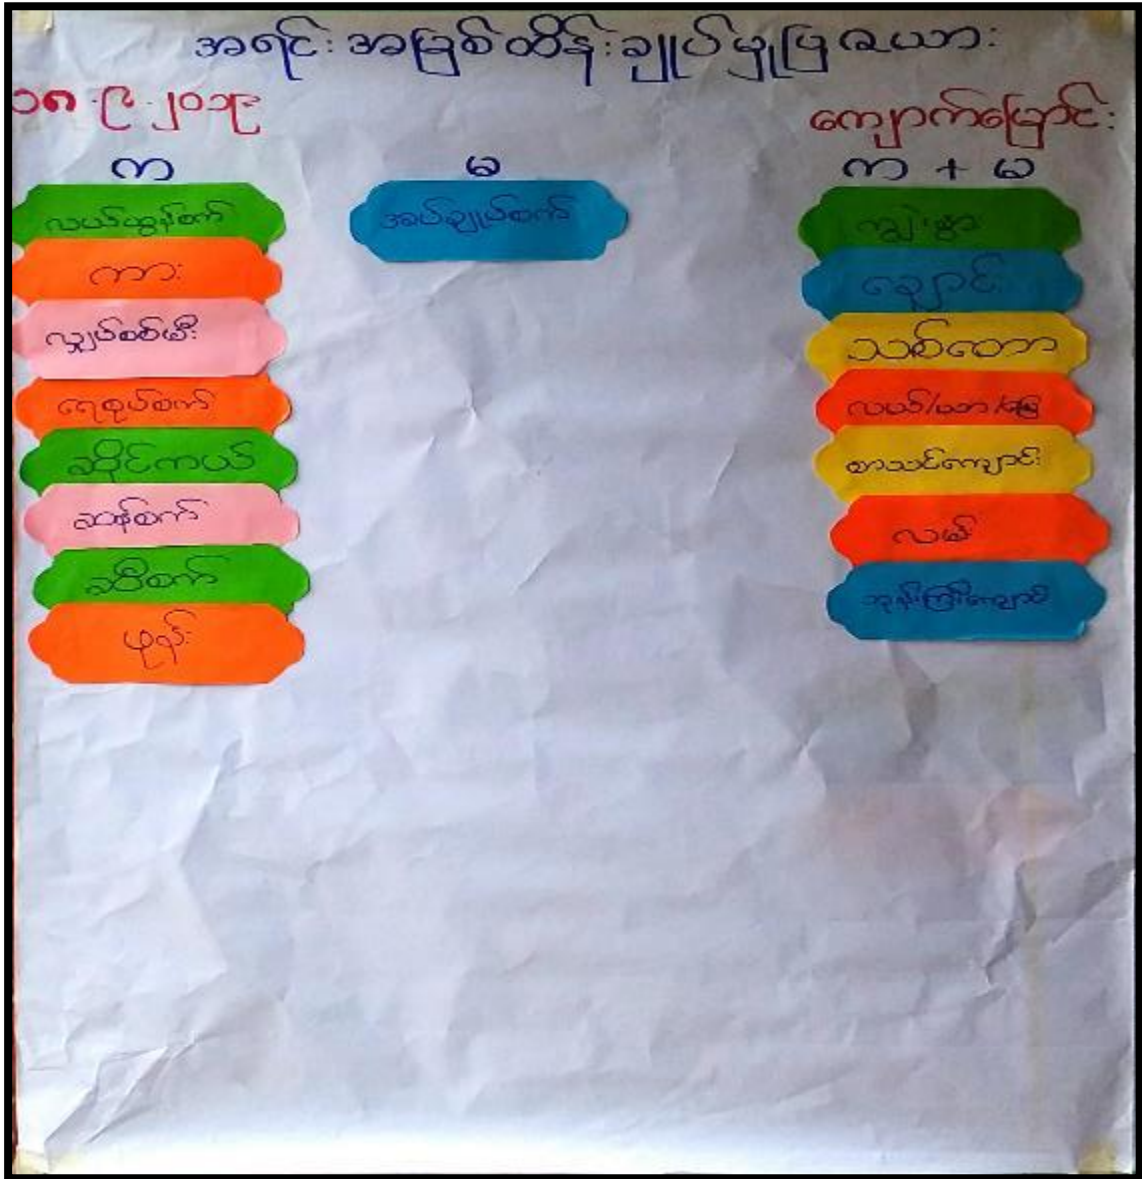 အရင်းအမြစ်ထိန်းချုပ်မှုပြဇယား
၁၈.၉.၂၀၁၉
ကျောက်မြောင်း
က
မ
က + မ
လယ်ထွန်စက်
ကား
လျှပ်စစ်မီး
ရေစုပ်စက်
ဆိုင်ကယ်
ဆန်စက်
ဆီစက်
ဖုန်း
အပ်ချုပ်စက်
ကျွဲ၊နွား
ချောင်း
သစ်တော
လယ်/ယာ/မြေ
စာသင်ကျောင်း
လမ်း
ဘုန်းကြီးကျောင်း